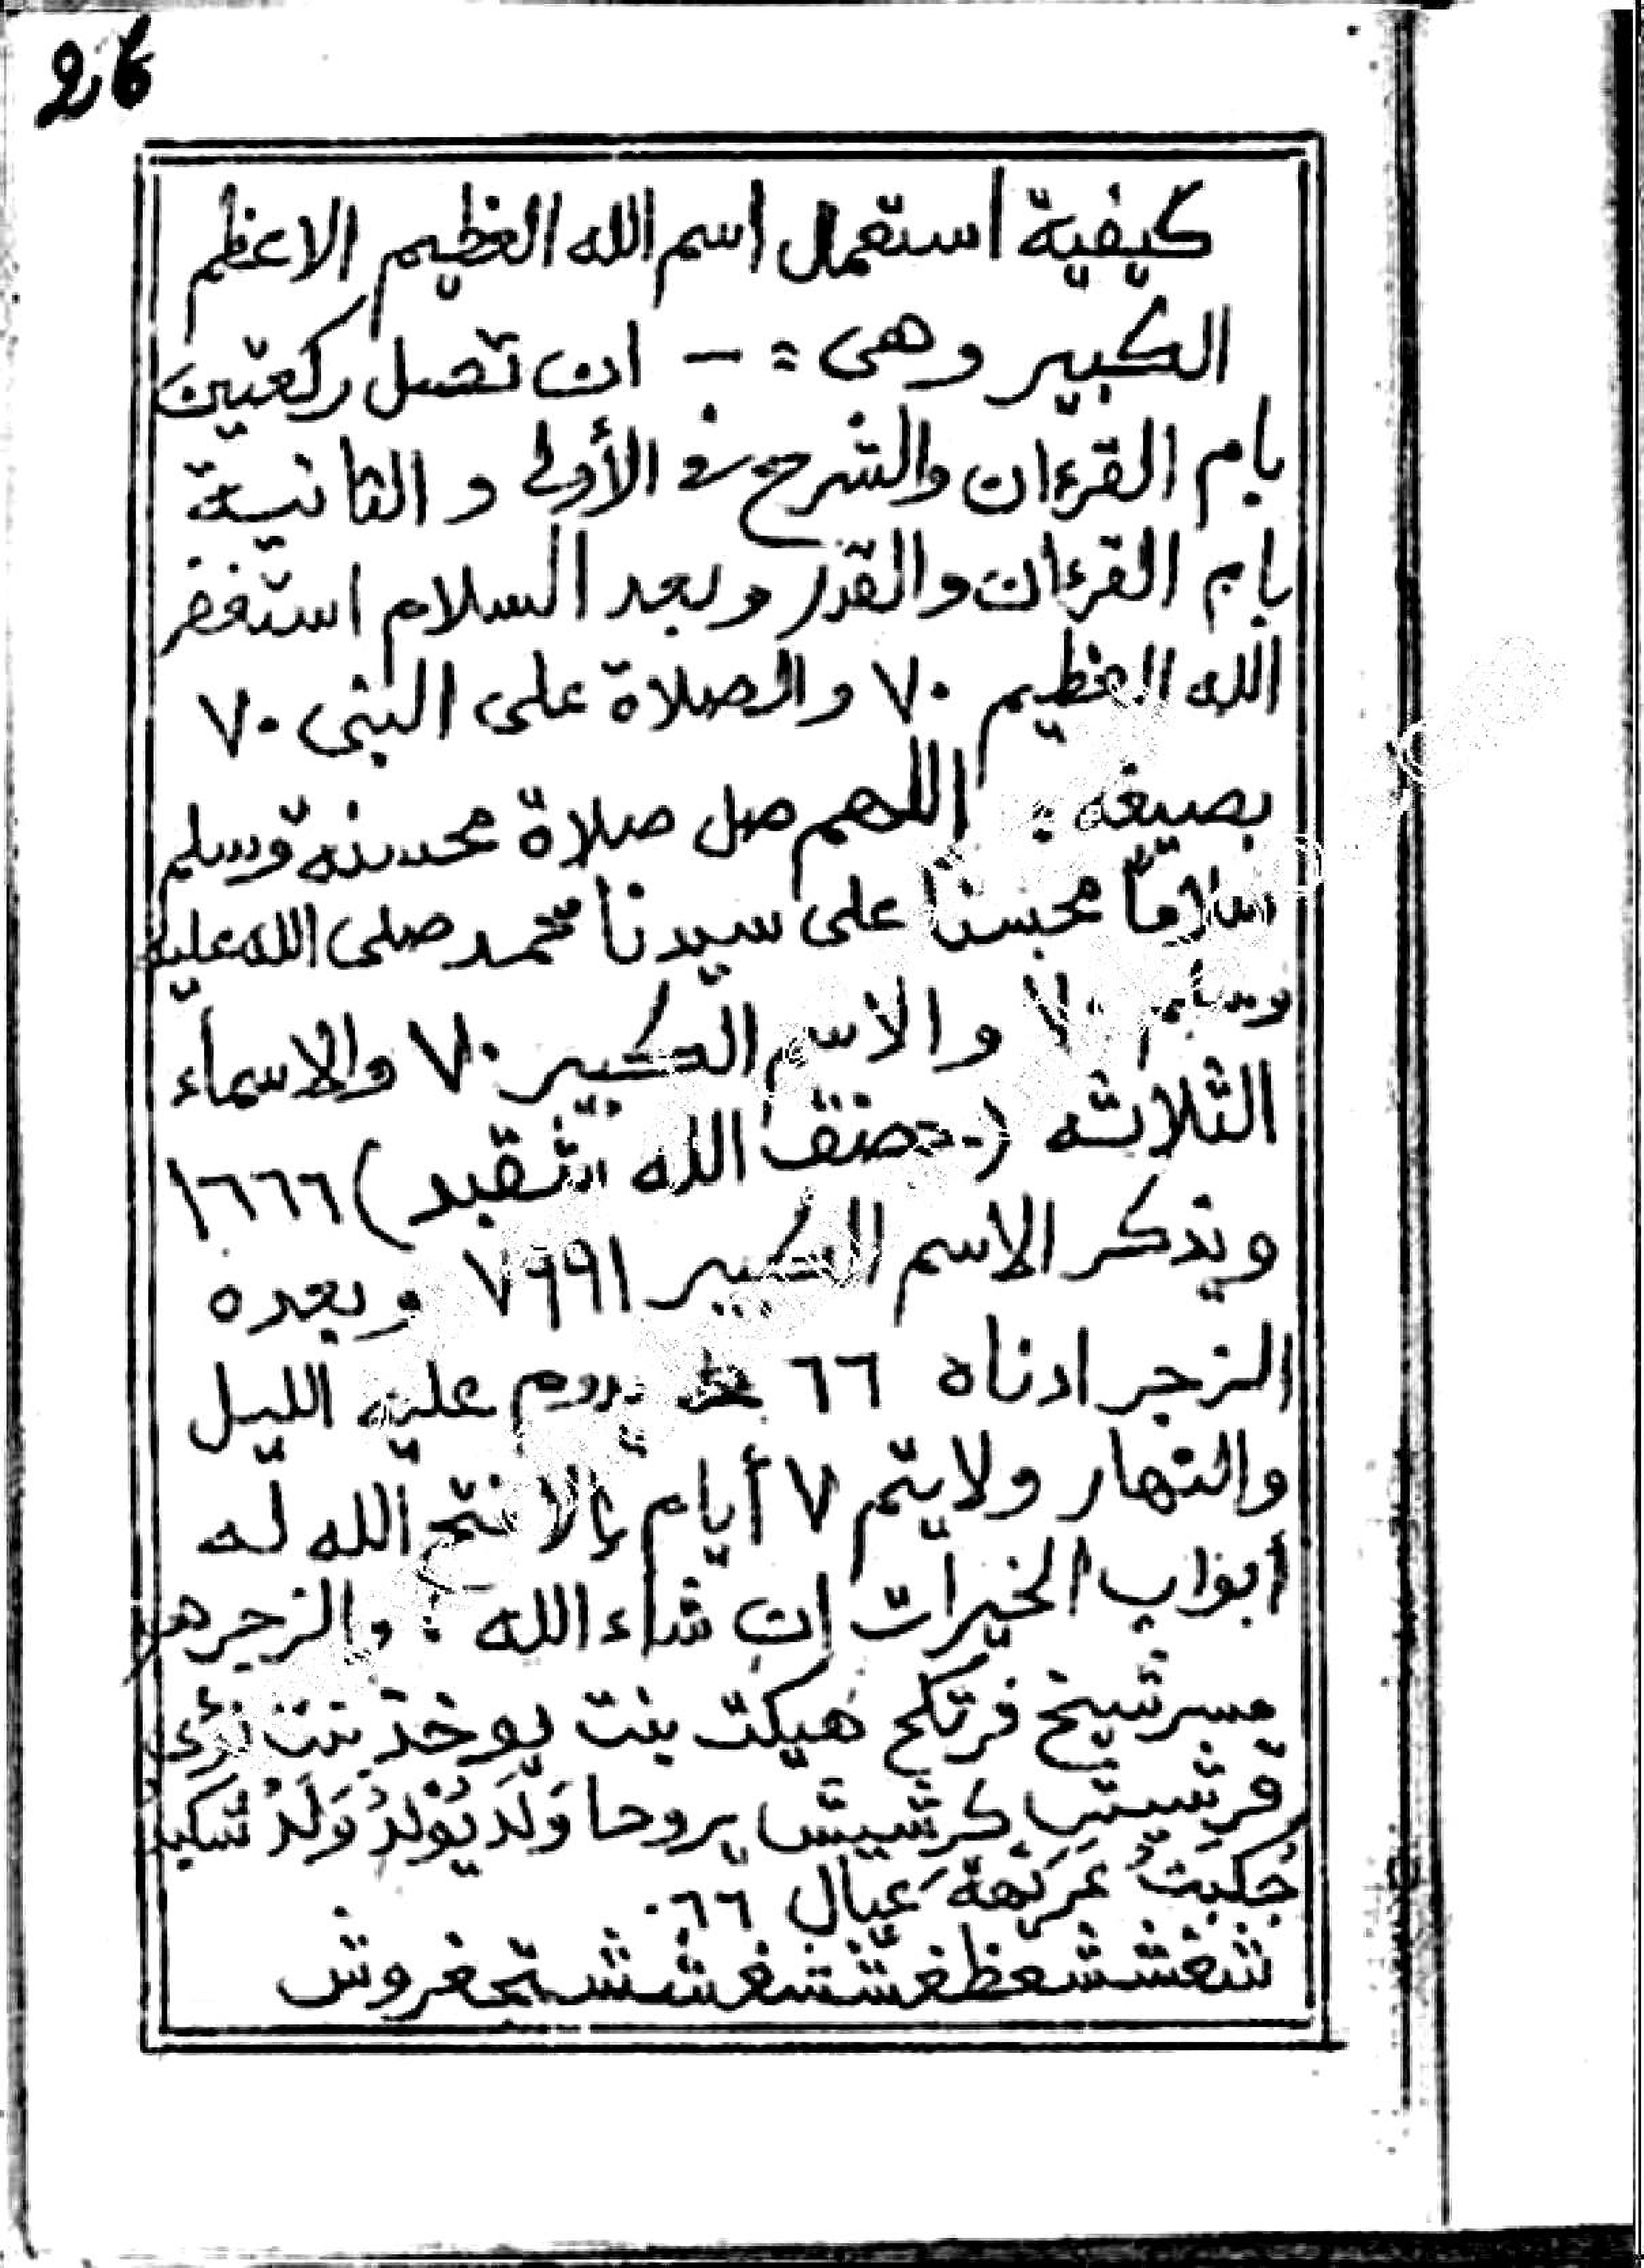 26
كيفية استعمال اسم الله العظيم الاعظم
الكبير وهى :- ان تصل ركعتين
بام القرءان والشرح في الأولى و الثانية
بام القرءان والقدر وبعد السلام استغفر
الله العظيم ٧٠ والصلاة على النبى ٧٠
بصيغه : اللهم صل صلاة محسنه وسلم
سلاماً محسناً على سيدنا محمد صلى الله عليه
وسلم ٧٠ والاسم الكبير ٧٠ والاسماء
الثلاثه ( الله ) ١٦٦٦
ويذكر الاسم الكبير ٧٦٩٩١ وبعده
الزجر ادناه ٦٦ يدوم عليه الليل
والنهار ولايتم ٧ أيام إلا فتح الله له
ابواب الخيرات ان شاء الله : والزجر هو
فرتكح هيكت بنت يوخذ بنت
كرشيش بروحا وَلَدَ يُوْلَدُ وَلَدُ
عيال ٦٦.